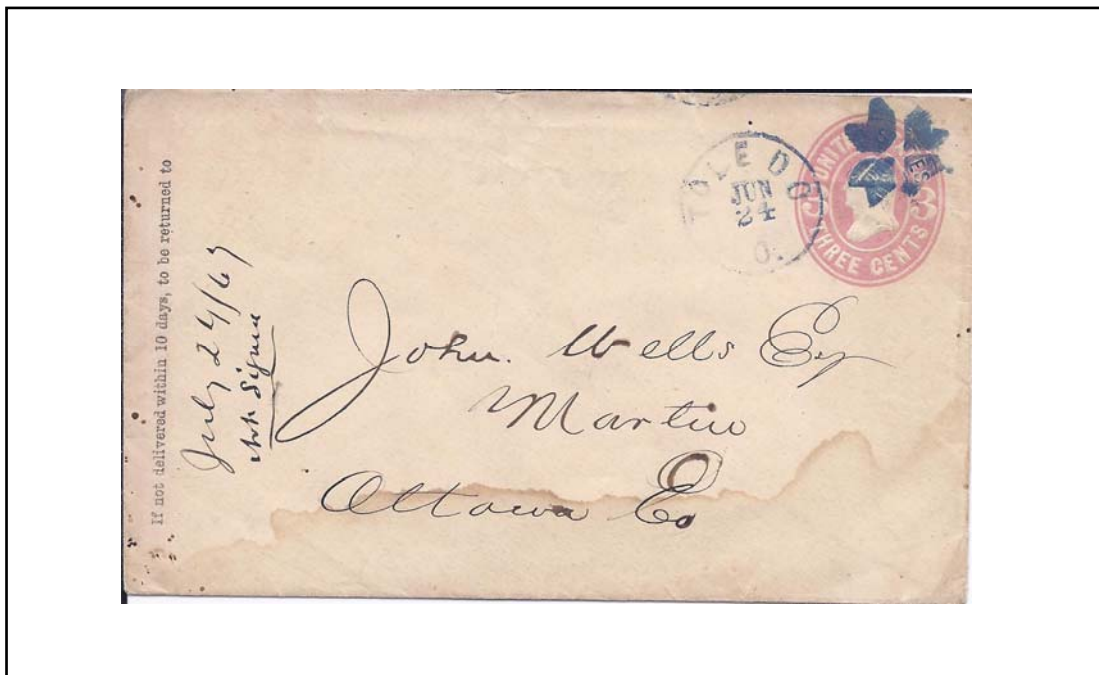 If not delivered within 10 days, to be returned to
July 24/67
TOLEDO
JUN
24
O.
UNITED
ES
3
3
THREE CENTS
John. Wells Esq
Martin
Ottawa Co
O